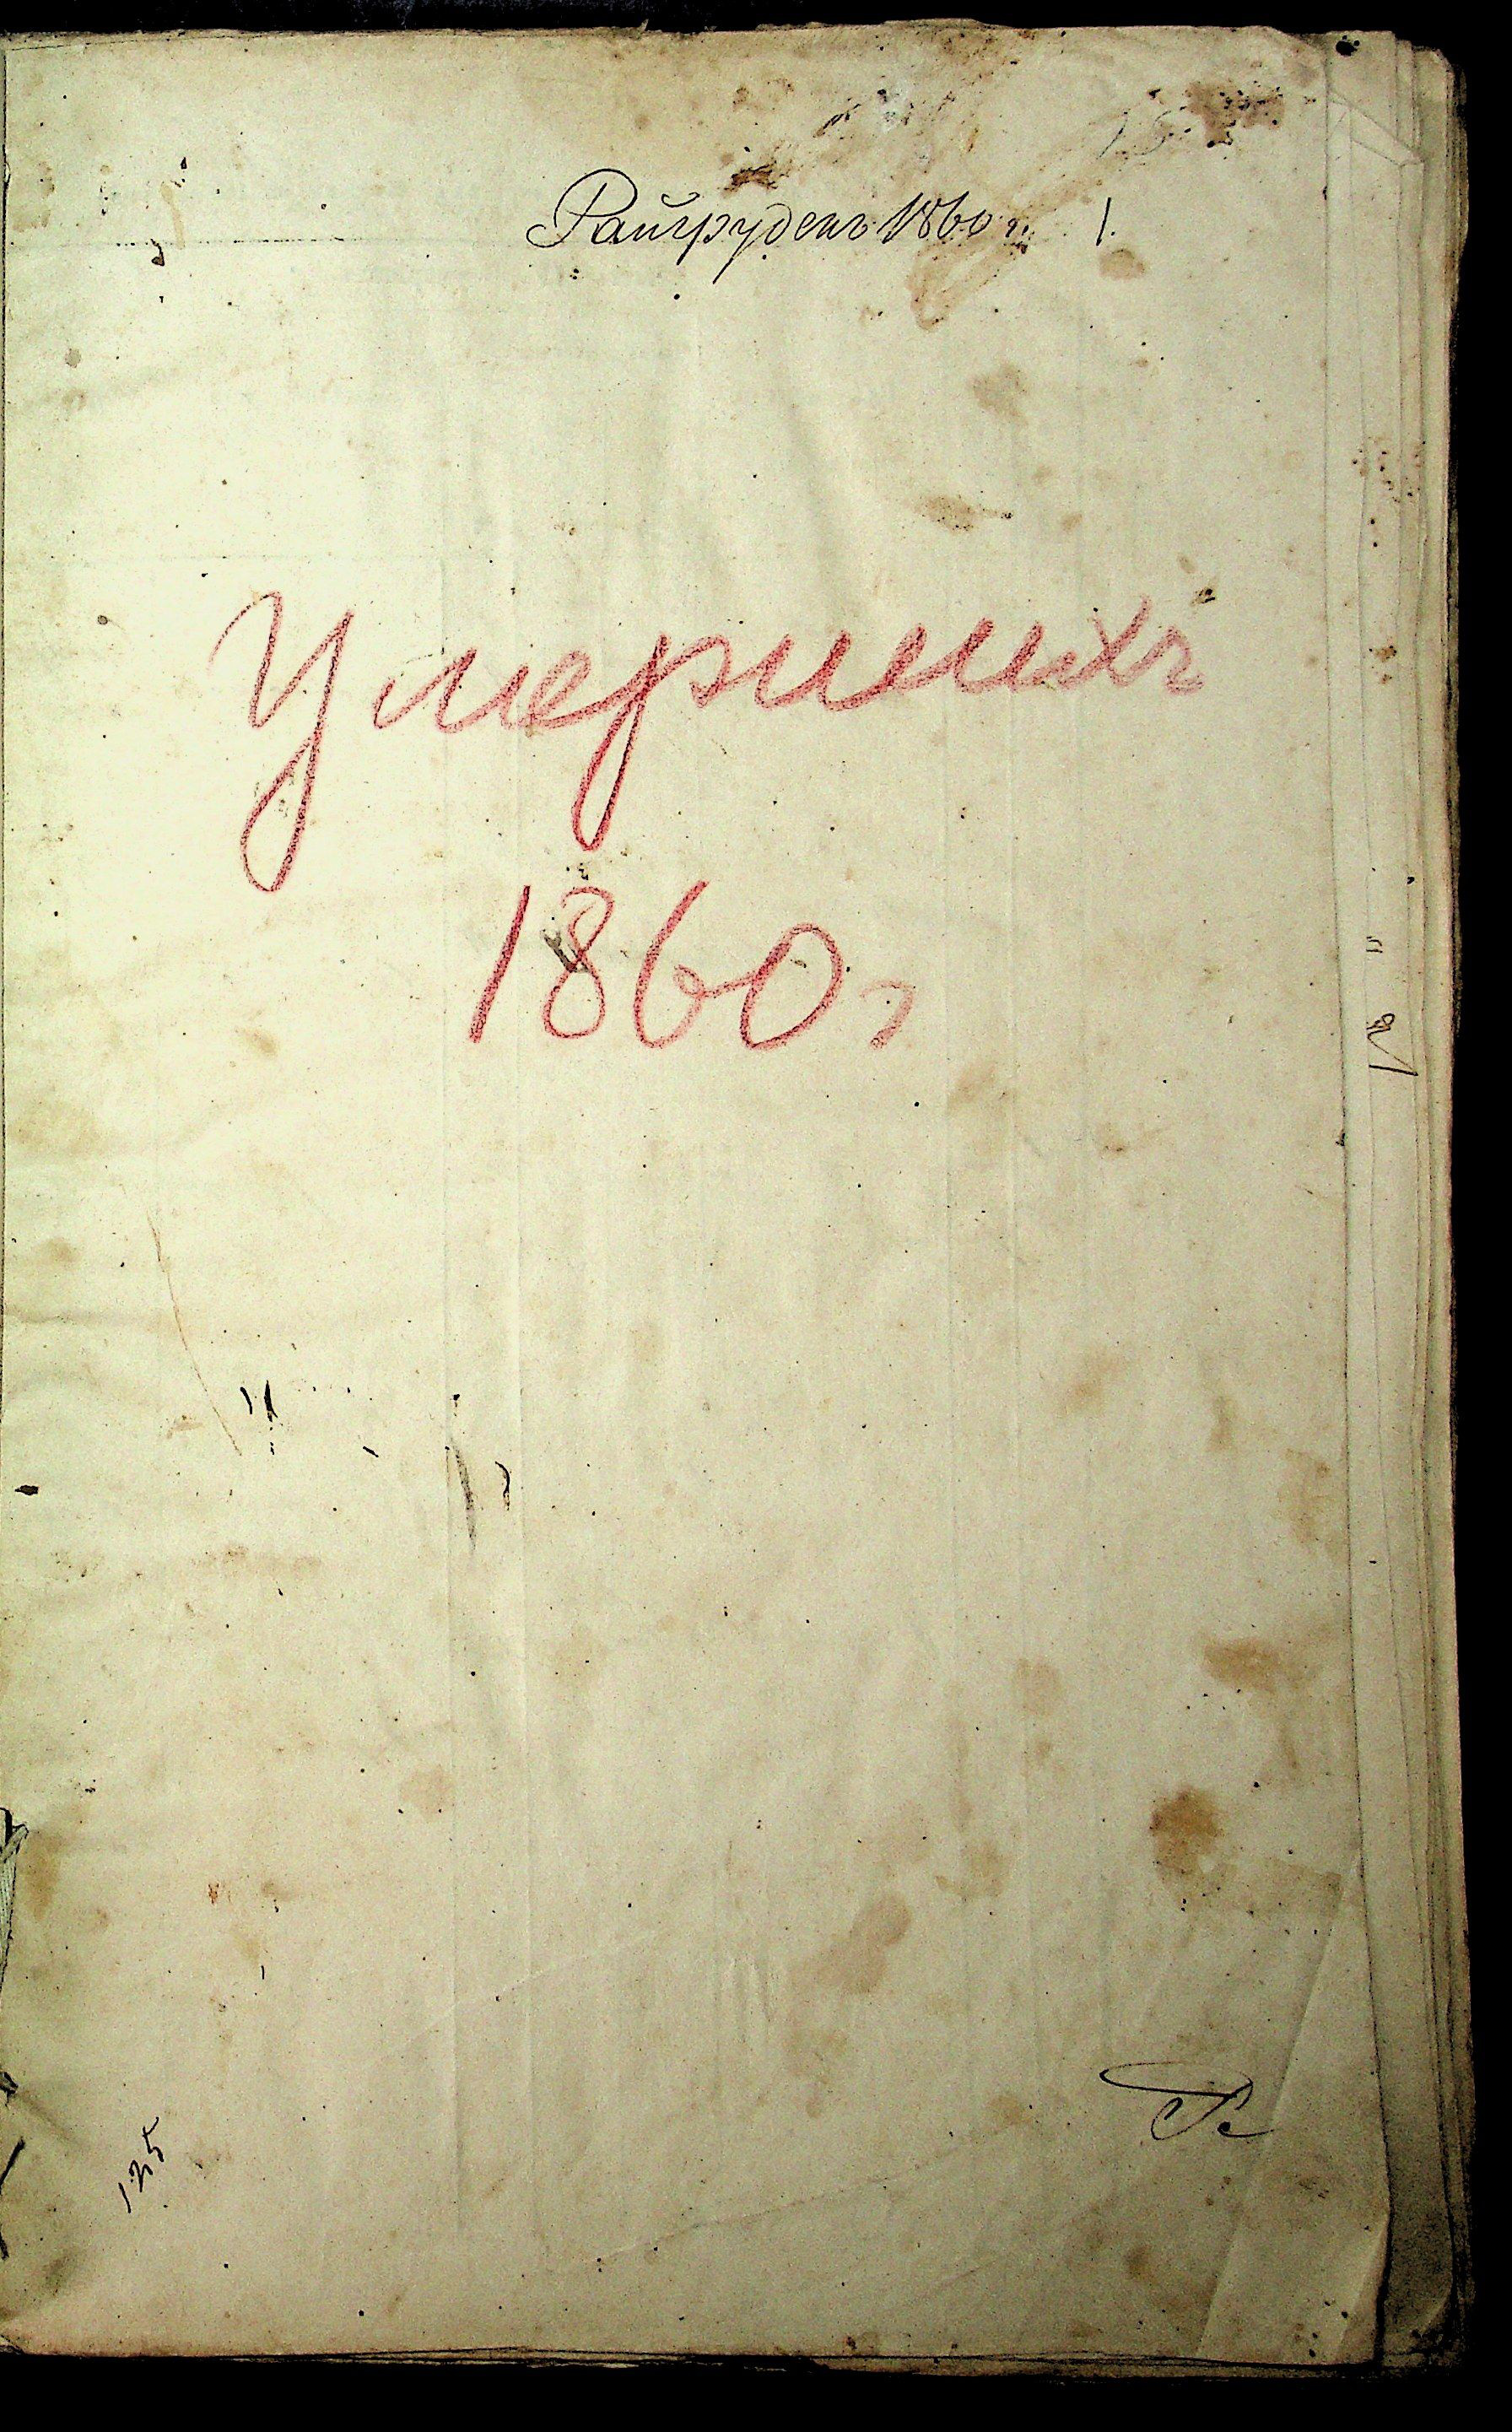 Райгруденъ 1860 г. 1.
Умершихъ
1860 г
125